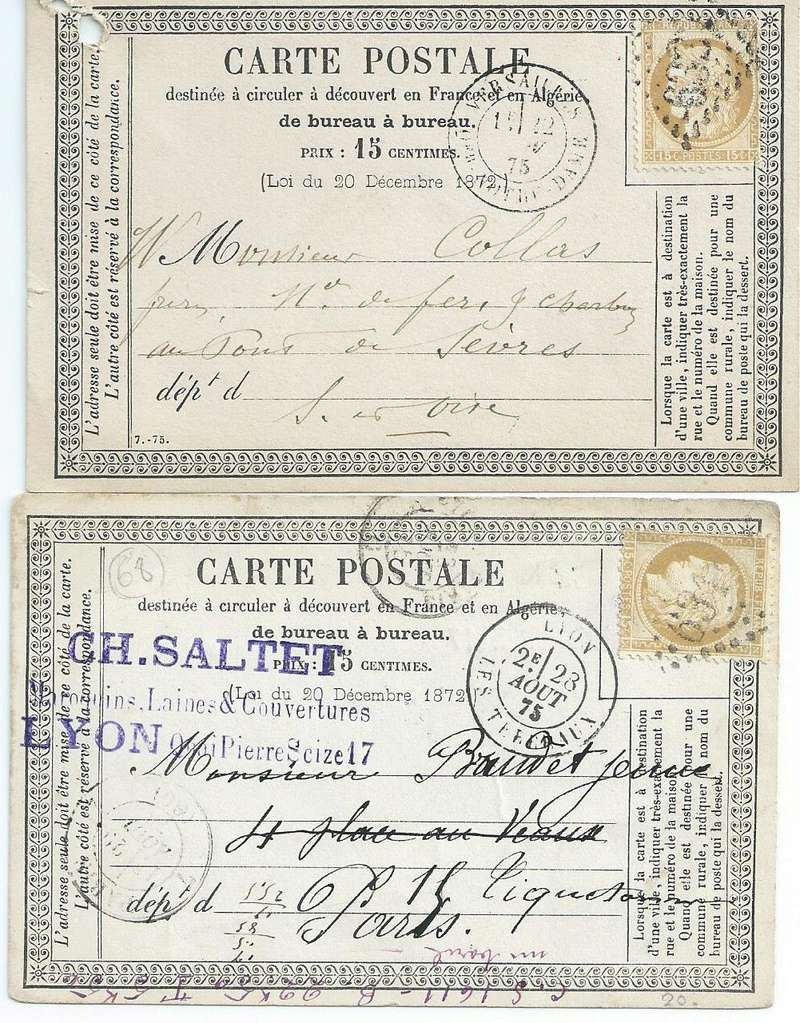 CARTE POSTALE
destinée à circuler à découvert en France et en Algérie
de bureau à bureau.
PRIX : 15 CENTIMES.
(Loi du 20 Décembre 1872.)
L'adresse seule doit être mise de ce côté de la carte.
L'autre côté est réservé à la correspondance.
VERSAILLES
12
75
15 C. POSTES 15 C.
Monsieur Collas
de fer, & charbon
au Pont de Sèvres
dépt d
S. et Oise
7.-75.
Lorsque la carte est à destination
d'une ville, indiquer très-exactement la
rue et le numéro de la maison.
Quand elle est destinée pour une
commune rurale, indiquer le nom du
bureau de poste qui la dessert.
68
CARTE POSTALE
destinée à circuler à découvert en France et en Algérie
de bureau à bureau.
PRIX : 15 CENTIMES.
(Loi du 20 Décembre 1872
L'adresse seule doit être mise de ce côté de la carte.
L'autre côté est réservé à la correspondance.
CH. SALTET
Laines & Couvertures
LYON Quai Pierre Scize 17
LYON
2E 23
AOUT
75
LES TERREAUX
Monsieur Baudet jeune
4 place au Veaux
15 Tiquetonne
dépt d
Paris.
Lorsque la carte est à destination
d'une ville, indiquer très-exactement la
rue et le numéro de la maison.
Quand elle est destinée pour une
commune rurale, indiquer le nom du
bureau de poste qui la dessert.
20.